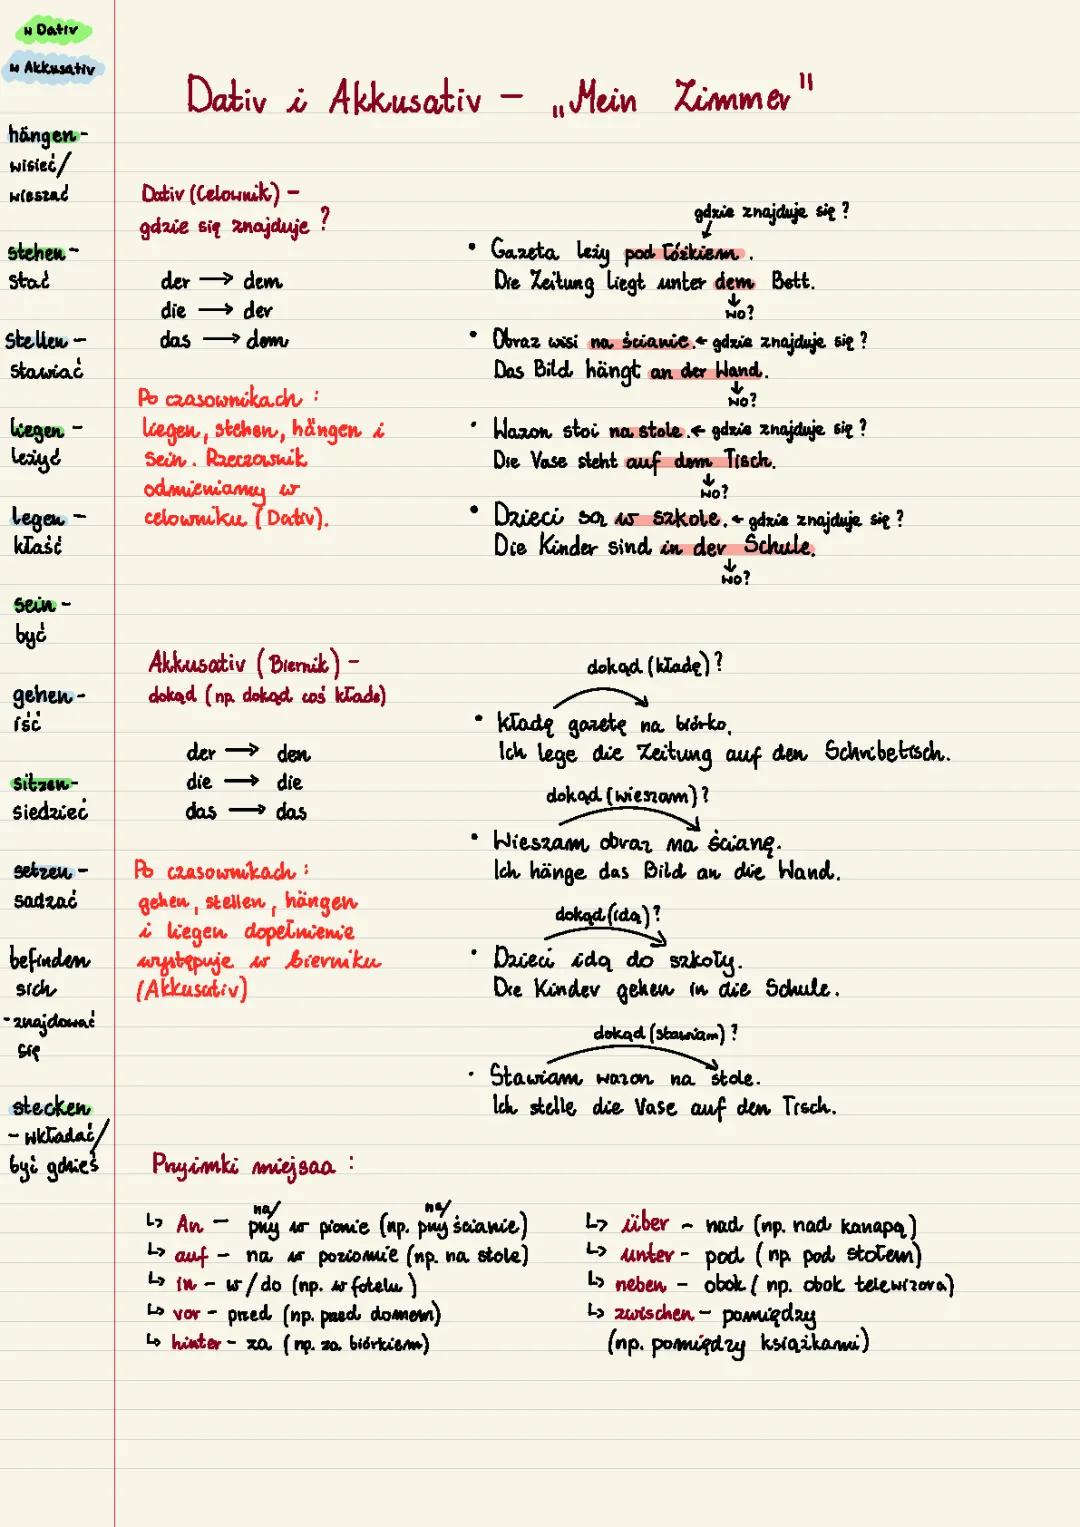 w Dativ
w Akkusativ
hängen -
wisieć/
wieszać
stehen -
stać
stellen -
stawiać
liegen -
leżyć
legen -
kłaść
sein -
być
gehen -
iść
sitzen -
siedzieć
setzen -
sadzać
befinden
sich
- znajdować
się
stecken
- wkładać/
być gdzieś
Dativ i Akkusativ – „Mein Zimmer"
Dativ (Celownik) –
gdzie się znajduje ?
der → dem
die → der
das → dem
Po czasownikach :
liegen, stehen, hängen i
sein. Rzeczownik
odmieniamy w
celowniku (Dativ).
gdzie znajduje się ?
• Gazeta leży pod łóżkiem.
Die Zeitung liegt unter dem Bett.
↓
wo?
• Obraz wisi na ścianie. ← gdzie znajduje się ?
Das Bild hängt an der Wand.
↓
wo?
• Wazon stoi na stole. ← gdzie znajduje się ?
Die Vase steht auf dem Tisch.
↓
wo?
• Dzieci są w szkole. ← gdzie znajduje się ?
Die Kinder sind in der Schule.
↓
wo?
Akkusativ (Biernik) –
dokąd (np. dokąd coś kładę)
der → den
die → die
das → das
Po czasownikach :
gehen, stellen, hängen
i liegen dopełnienie
występuje w bierniku
(Akkusativ)
dokąd (kładę)?
• Kładę gazetę na biórko.
Ich lege die Zeitung auf den Schribetisch.
dokąd (wieszam)?
• Wieszam obraz na ścianę.
Ich hänge das Bild an die Wand.
dokąd (idą)?
• Dzieci idą do szkoły.
Die Kinder gehen in die Schule.
dokąd (stawiam) ?
• Stawiam wazon na stole.
Ich stelle die Vase auf den Tisch.
Przyimki miejsca :
↳ An – na/ przy w pionie (np. na/ przy ścianie)
↳ auf – na w poziomie (np. na stole)
↳ in – w/do (np. w fotelu)
↳ vor – przed (np. przed domem)
↳ hinter – za (np. za biórkiem)
↳ über – nad (np. nad kanapą)
↳ unter – pod (np. pod stołem)
↳ neben – obok (np. obok telewizora)
↳ zwischen – pomiędzy
(np. pomiędzy książkami)